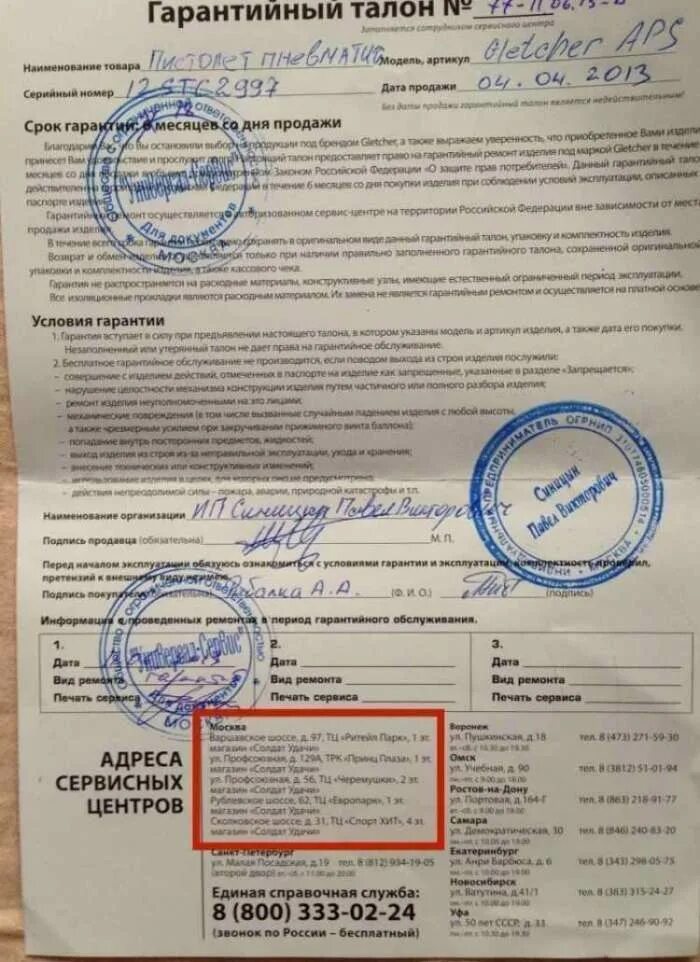 Гарантийный талон №
Заполняется сотрудником сервисного центра
Наименование товара Пистолет пневматич Модель, артикул Gletcher APS
Серийный номер 12STC2997 Дата продажи 04.04.2013
Без даты продажи гарантийный талон является недействительным!
Срок гарантии: 6 месяцев со дня продажи
Благодарим что Вы остановили выбор продукции под брендом Gletcher, а также выражаем уверенность, что приобретенное Вами изделие
принесет Вам талон предоставляет право на гарантийный ремонт изделия под маркой Gletcher в течение
месяцев со дня Законом Российской Федерации «О защите прав потребителей». Данный гарантийный
действителен Федерации в течение 6 месяцев со дня покупки изделия при соблюдении условий эксплуатации, описанных
паспорте изделия
Гарантийный ремонт осуществляется сервис-центре на территории Российской Федерации вне зависимости от места
продажи изделия.
В течение всего сохранять в оригинальном виде данный гарантийный талон, упаковку и комплектность изделия.
Возврат и обмен изделия только при наличии правильно заполненного гарантийного талона, сохраненной оригинальной
упаковки и комплектности изделия, а также кассового чека.
Гарантия не распространяется на расходные материалы, конструктивные узлы, имеющие естественный ограниченный период эксплуатации.
Все изоляционные прокладки являются расходным материалом. Их замена не является гарантийным ремонтом и осуществляется на платной основе
Условия гарантии
1. Гарантия вступает в силу при предъявлении настоящего талона, в котором указаны модель и артикул изделия, а также дата его покупки.
Незаполненный или утерянный талон не дает права на гарантийное обслуживание.
2. Бесплатное гарантийное обслуживание не производится, если поводом выхода из строя изделия послужили:
– совершение с изделием действий, отмеченных в паспорте на изделие как запрещенные, указанные в разделе «Запрещается»;
– нарушение целостности механизма конструкции изделия путем частичного или полного разбора изделия;
– ремонт изделия неуполномоченными на это лицами;
– механические повреждения (в том числе вызванные случайным падением изделия с любой высоты,
а также чрезмерным усилием при закручивании прижимного винта баллона);
– попадание внутрь посторонних предметов, жидкостей;
– выход изделия из строя из-за неправильной эксплуатации, ухода и хранения;
– внесение технических или конструктивных изменений;
– использование изделия в целях, для которых оно не предусмотрено;
– действия непреодолимой силы – пожара, аварии, природной катастрофы и т.п.
Наименование организации ИП Синицын Павел Викторович
Подпись продавца (обязательна) М. П.
Перед началом эксплуатации обязуюсь ознакомиться с условиями гарантии и эксплуатации, комплектность проверил,
претензий к внешнему виду не имею.
Подпись покупателя А.А. (Ф. И. О.) (подпись)
Информация о проведенных ремонтах в период гарантийного обслуживания.
1. 2. 3.
Дата Дата Дата
Вид ремонта Вид ремонта Вид ремонта
Печать сервиса Печать сервиса Печать сервиса
Общество с ограниченной ответственностью
"Универсал-Сервис"
Для документов
МОСКВА
Синицын
Павел Викторович
ИНДИВИДУАЛЬНЫЙ ПРЕДПРИНИМАТЕЛЬ ОГРНИП
МОСКВА
Общество с ограниченной ответственностью
"Универсал-Сервис"
Для документов
МОСКВА
АДРЕСА
СЕРВИСНЫХ
ЦЕНТРОВ
Москва
Варшавское шоссе, д. 97, ТЦ «Ритейл Парк», 1 эт.
магазин «Солдат Удачи»
ул. Профсоюзная, д. 129А, ТРК «Принц Плаза», 1 эт.
магазин «Солдат Удачи»
ул. Профсоюзная, д. 56, ТЦ «Черемушки», 2 эт.
магазин «Солдат Удачи»
Рублевское шоссе, 62, ТЦ «Европарк», 1 эт.
магазин «Солдат Удачи»
Сколковское шоссе, д. 31, ТЦ «Спорт ХИТ», 4 эт.
магазин «Солдат Удачи»
Санкт-Петербург
ул. Малая Посадская, д.19 тел. 8 (812) 934-19-05
(второй двор) вт.-сб. с 11.00 до 20.00
Единая справочная служба:
8 (800) 333-02-24
(звонок по России – бесплатный)
Воронеж
ул. Пушкинская, д.18 тел. 8 (473) 271-59-30
Омск
ул. Учебная, д. 90 тел. 8 (3812) 51-01-94
Ростов-на-Дону
ул. Портовая, д.164-Г тел. 8 (863) 218-91-77
Самара
ул. Демократическая, 30 тел. 8 (846) 240-83-20
Екатеринбург
ул. Анри Барбюса, д. 6 тел. 8 (343) 298-05-75
Новосибирск
ул. Ватутина, д.41/1 тел. 8 (383) 315-24-27
Уфа
ул. 50 лет СССР, д. 33 тел. 8 (347) 246-90-92